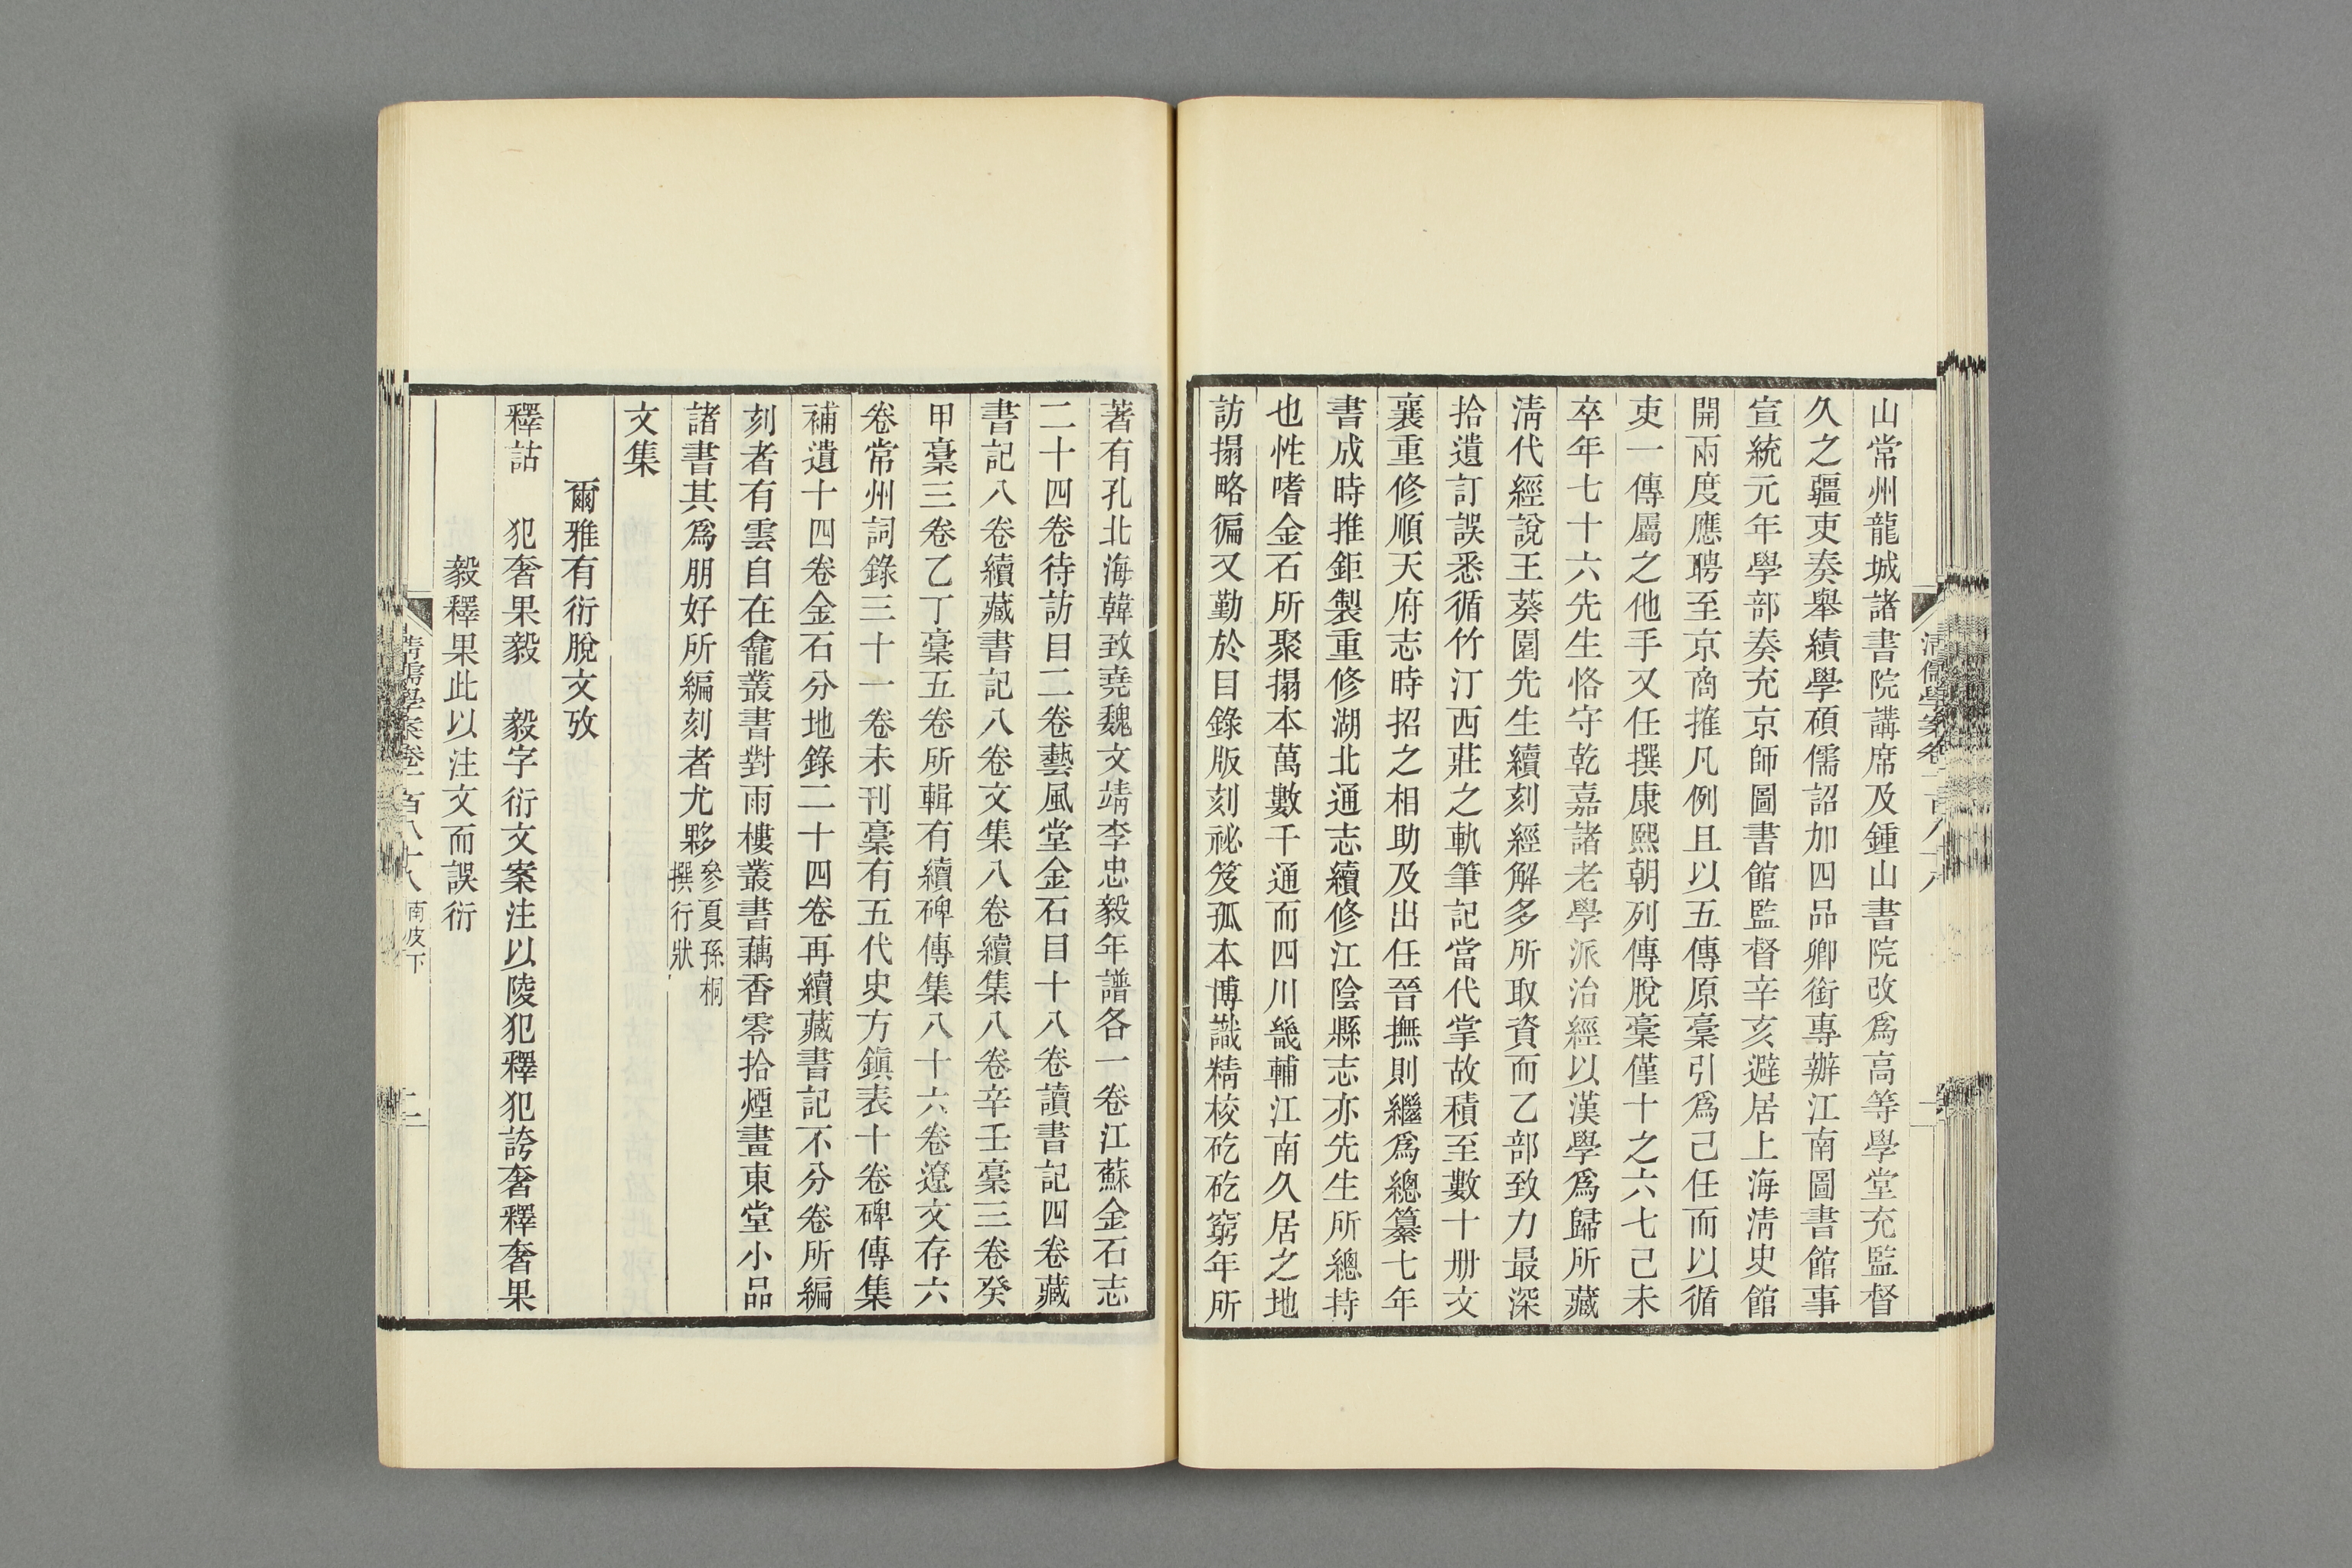 山常州龍城諸書院講席及鍾山書院改爲高等學堂充監督
久之疆吏奏舉績學碩儒詔加四品卿銜專辦江南圖書館事
宣統元年學部奏充京師圖書館監督辛亥避居上海淸史館
開兩度應聘至京商搉凡例且以五傳原稾引爲己任而以循
吏一傳屬之他手又任撰康熙朝列傳脫稾僅十之六七己未
卒年七十六先生恪守乾嘉諸老學派治經以漢學爲歸所藏
淸代經說王葵園先生續刻經解多所取資而乙部致力最深
拾遺訂誤悉循竹汀西莊之軌筆記當代掌故積至數十册文
襄重修順天府志時招之相助及出任晉撫則繼爲總纂七年
書成時推鉅製重修湖北通志續修江陰縣志亦先生所總持
也性嗜金石所聚搨本萬數千通而四川畿輔江南久居之地
訪搨略徧又勤於目錄版刻祕笈孤本博識精校矻矻窮年所
著有孔北海韓致堯魏文靖李忠毅年譜各一卷江蘇金石志
二十四卷待訪目二卷藝風堂金石目十八卷讀書記四卷藏
書記八卷續藏書記八卷文集八卷續集八卷辛壬稾三卷癸
甲稾三卷乙丁稾五卷所輯有續碑傳集八十六卷遼文存六
卷常州詞錄三十一卷未刊稾有五代史方鎭表十卷碑傳集
補遺十四卷金石分地錄二十四卷再續藏書記不分卷所編
刻者有雲自在龕叢書對雨樓叢書藕香零拾煙畫東堂小品
諸書其爲朋好所編刻者尤夥參夏孫桐
撰行狀
文集
爾雅有衍脫文攷
釋詁　犯奢果毅　毅字衍文案注以陵犯釋犯誇奢釋奢果
毅釋果此以注文而誤衍
淸儒學案卷一百八十八　南皮下　二